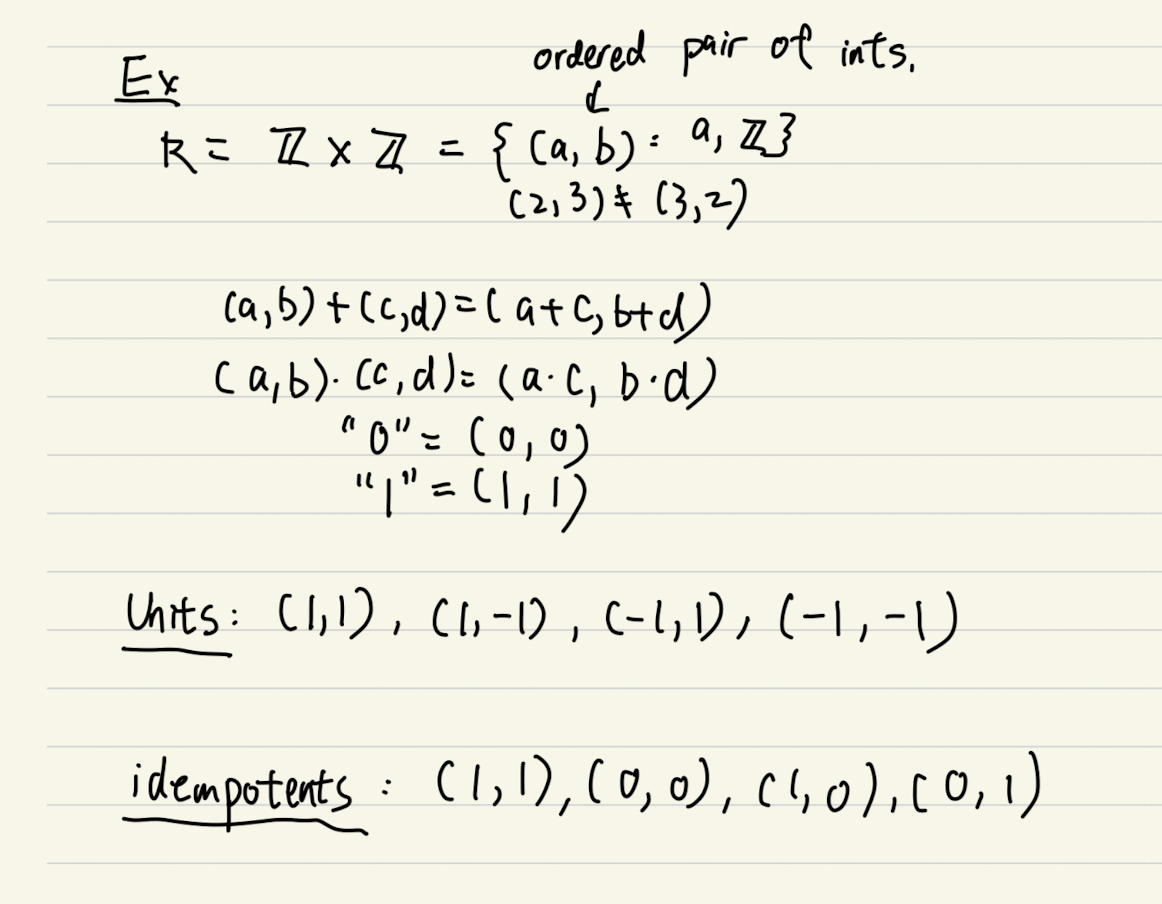 ordered pair of ints.
Ex
R = ℤ × ℤ = { (a, b) : a, ℤ}
(2,3) ≠ (3,2)
(a,b)+(c,d)=(a+c, b+d)
(a,b)·(c,d)=(a·c, b·d)
"0" = (0, 0)
"1" = (1, 1)
Units: (1,1), (1,-1), (-1,1), (-1,-1)
idempotents: (1,1), (0,0), (1,0), (0,1)